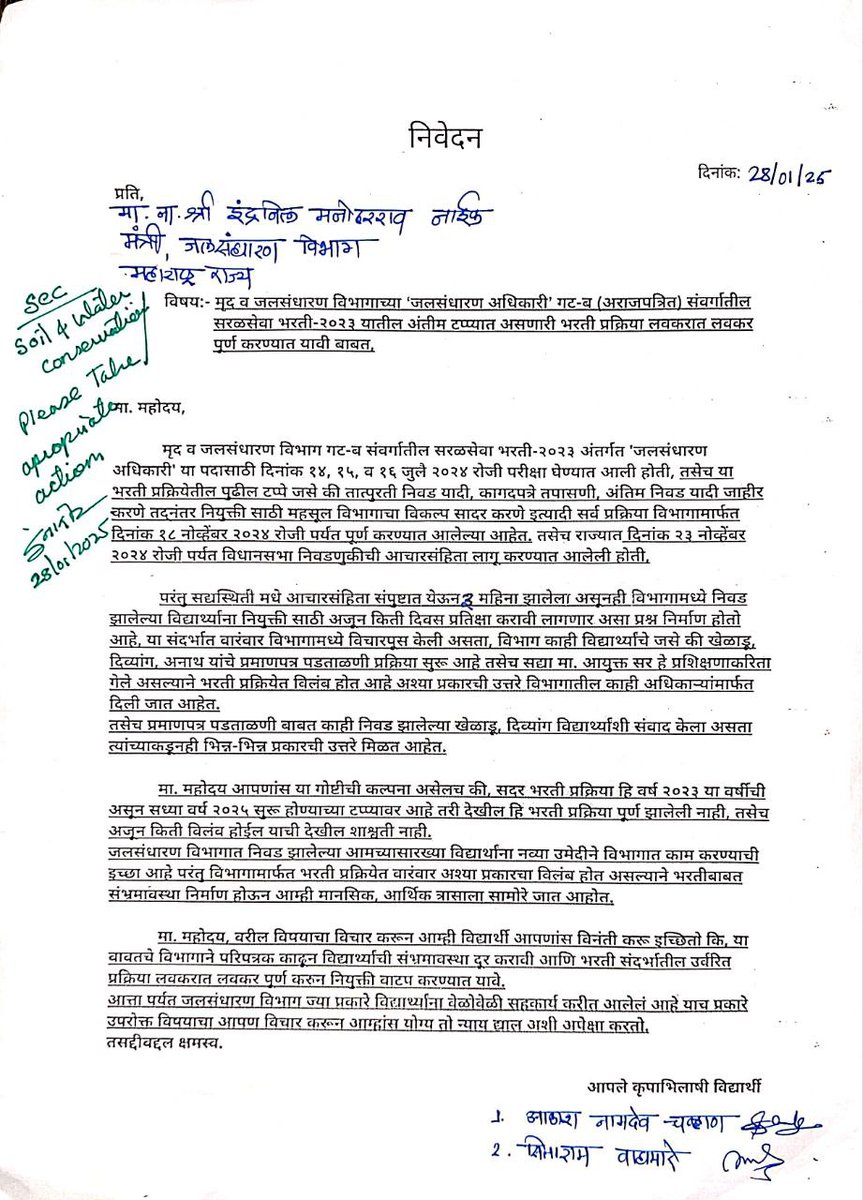 निवेदन
दिनांक: 28/01/25
प्रति,
मा. ना. श्री इंद्रनिल मनोहरराव नाईक
मंत्री, जलसंधारण विभाग
महाराष्ट्र राज्य
Sec
Soil & Water
conservation
Please Take
apropriate
action
28/01/2025
विषय:- मृद व जलसंधारण विभागाच्या 'जलसंधारण अधिकारी' गट-ब (अराजपत्रित) संवर्गातील
सरळसेवा भरती-२०२३ यातील अंतीम टप्प्यात असणारी भरती प्रक्रिया लवकरात लवकर
पुर्ण करण्यात यावी बाबत.
मा. महोदय,
मृद व जलसंधारण विभाग गट-ब संवर्गातील सरळसेवा भरती-२०२३ अंतर्गत 'जलसंधारण
अधिकारी' या पदासाठी दिनांक १४, १५, व १६ जुले २०२४ रोजी परीक्षा घेण्यात आली होती, तसेच या
भरती प्रक्रियेतील पुढील टप्पे जसे की तात्पुरती निवड यादी, कागदपत्रे तपासणी, अंतिम निवड यादी जाहीर
करणे तदनंतर नियुक्ती साठी महसूल विभागाचा विकल्प सादर करणे इत्यादी सर्व प्रक्रिया विभागामार्फत
दिनांक १८ नोव्हेंबर २०२४ रोजी पर्यंत पूर्ण करण्यात आलेल्या आहेत. तसेच राज्यात दिनांक २३ नोव्हेंबर
२०२४ रोजी पर्यंत विधानसभा निवडणुकीची आचारसंहिता लागू करण्यात आलेली होती,
परंतु सद्यस्थिती मधे आचारसंहिता संपुष्टात येऊन 3 महिना झालेला असूनही विभागामध्ये निवड
झालेल्या विद्यार्थ्याना नियुक्ती साठी अजून किती दिवस प्रतिक्षा करावी लागणार असा प्रश्न निर्माण होतो
आहे, या संदर्भात वारंवार विभागामध्ये विचारपूस केली असता, विभाग काही विद्यार्थ्यांचे जसे की खेळाडू,
दिव्यांग, अनाथ यांचे प्रमाणपत्र पडताळणी प्रक्रिया सुरू आहे तसेच सद्या मा. आयुक्त सर हे प्रशिक्षणाकरिता
गेले असल्याने भरती प्रक्रियेत विलंब होत आहे अश्या प्रकारची उत्तरे विभागातील काही अधिकाऱ्यांमार्फत
दिली जात आहेत.
तसेच प्रमाणपत्र पडताळणी बाबत काही निवड झालेल्या खेळाडू, दिव्यांग विद्यार्थ्याशी संवाद केला असता
त्यांच्याकडूनही भिन्न-भिन्न प्रकारची उत्तरे मिळत आहेत.
मा. महोदय आपणांस या गोष्टीची कल्पना असेलच की, सदर भरती प्रक्रिया हि वर्ष २०२३ या वर्षीची
असून सध्या वर्ष २०२५ सुरू होण्याच्या टप्प्यावर आहे तरी देखील हि भरती प्रक्रिया पूर्ण झालेली नाही, तसेच
अजून किती विलंब होईल याची देखील शाश्वती नाही.
जलसंधारण विभागात निवड झालेल्या आमच्यासारख्या विद्यार्थांना नव्या उमेदीने विभागात काम करण्याची
इच्छा आहे परंतु विभागामार्फत भरती प्रक्रियेत वारंवार अश्या प्रकारचा विलंब होत असल्याने भरतीबाबत
संभ्रमावस्था निर्माण होऊन आम्ही मानसिक, आर्थिक त्रासाला सामोरे जात आहोत.
मा. महोदय, वरील विषयाचा विचार करून आम्ही विद्यार्थी आपणांस विनंती करू इच्छितो कि, या
बाबतचे विभागाने परिपत्रक काढून विद्यार्थ्यांची संभ्रमावस्था दूर करावी आणि भरती संदर्भातील उर्वरित
प्रक्रिया लवकरात लवकर पूर्ण करुन नियुक्ती वाटप करण्यात यावे.
आत्ता पर्यंत जलसंधारण विभाग ज्या प्रकारे विद्यार्थ्यांना वेळोवेळी सहकार्य करीत आलेलं आहे याच प्रकारे
उपरोक्त विषयाचा आपण विचार करून आम्हांस योग्य तो न्याय द्याल अशी अपेक्षा करतो.
तसद्दीबद्दल क्षमस्व.
आपले कृपाभिलाषी विद्यार्थी
1. आकाश नागदेव चव्हाण
2. सिताराम वाघमारे